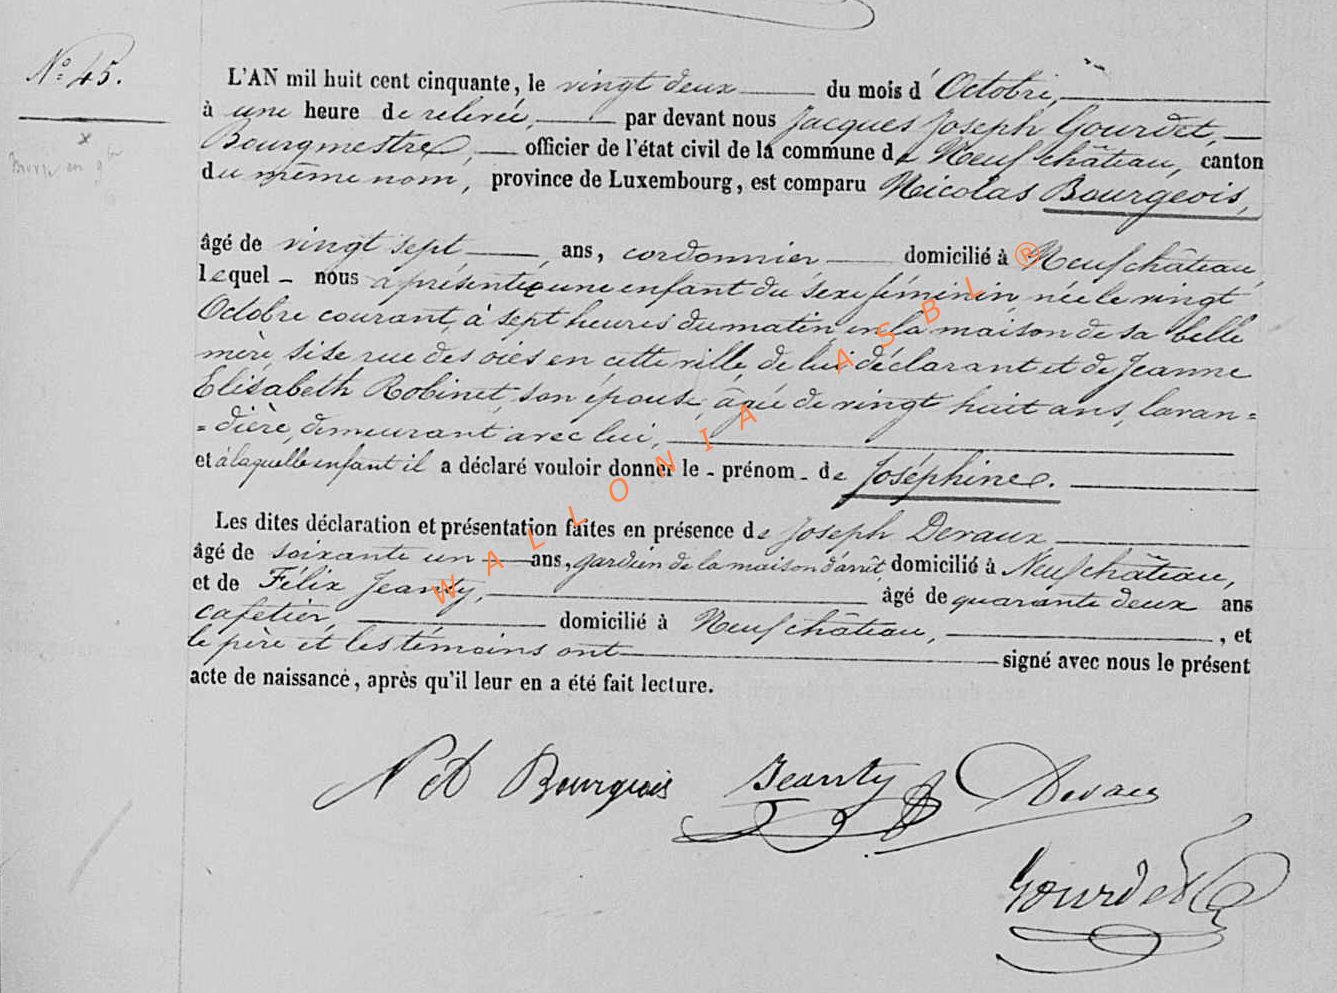 N° 45.
L'AN mil huit cent cinquante, le vingt deux du mois d'Octobre,
à une heure de relevée, par devant nous Jacques Joseph Gourdet,
Bourgmestre, officier de l'état civil de la commune de Neufchâteau, canton
du même nom, province de Luxembourg, est comparu Nicolas Bourgeois,
âgé de vingt sept ans, cordonnier domicilié à Neufchâteau,
lequel - nous a présenté une enfant du sexe féminin, née le vingt
Octobre courant, à sept heures du matin, en la maison de sa belle
mère, sise rue des oies en cette ville, de lui déclarant et de Jeanne
Elisabeth Robinet, son épouse, âgée de vingt huit ans, lavan=
=dière, demeurant avec lui,
et à laquelle enfant il a déclaré vouloir donner le - prénom - de Joséphine.
Les dites déclaration et présentation faites en présence de Joseph Devaux
âgé de soixante un ans, gardien de la maison d'arrêt, domicilié à Neufchâteau,
et de Félix Jeanty, âgé de quarante deux ans
cafetier, domicilié à Neufchâteau, , et
le père et les témoins ont signé avec nous le présent
acte de naissance, après qu'il leur en a été fait lecture.
Bourgeois Jeanty Devaux
Gourdet
WALLONIA ASBL ®